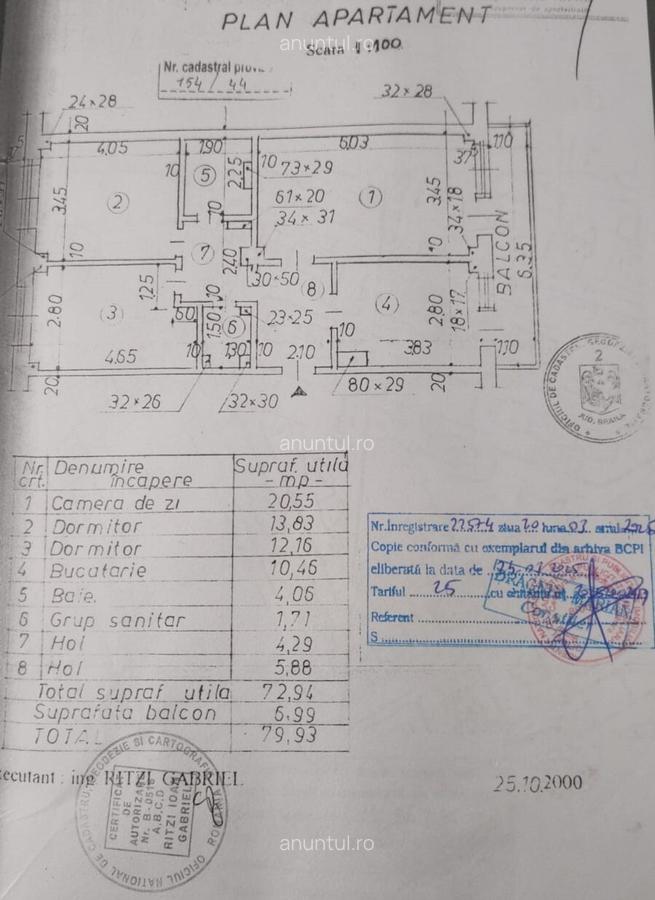 PLAN APARTAMENT
anuntul.ro
Scara 1:100
Nr. cadastral proviz.
154 / 44
24×28
32×28
20
4,05
1,90
6,03
37⁵
1,10
10
5
2,25
10
73×29
61×20
34×31
3,45
2
1
3,45
34×18
BALCON
6,35
10
10
7
2,40
10
30×50
8
1,25
2,80
3
60
10
1,50
6
23×25
4
2,80
18×17
10
4,65
1,30
10
2,10
3,83
1,10
20
32×26
32×30
80×29
20
OFICIUL DE CADASTRU
2
JUD. BRAILA
anuntul.ro
Nr. crt. Denumire încapere Supraf. utilă - mp -
1 Camera de zi 20,55
2 Dormitor 13,83
3 Dormitor 12,16
4 Bucatarie 10,46
5 Baie 4,06
6 Grup sanitar 1,71
7 Hol 4,29
8 Hol 5,88
Total supraf utila 72,94
Suprafata balcon 6,99
TOTAL 79,93
Nr.Inregistrare 22574 ziua 20 luna 03 anul 2025
Copie conformă cu exemplarul din arhiva BCPI
eliberată la data de
Tariful 25 cu chitanta nr.
Referent
S
Executant : ing. RITZI GABRIEL
25.10.2000
OFICIUL NATIONAL DE CADASTRU GEODEZIE SI CARTOGRAFIE
ROMANIA
CERTIFICAT
DE
AUTORIZARE
Nr. B-0516
A,B,C,D
RITZI IOAN
GABRIEL
anuntul.ro